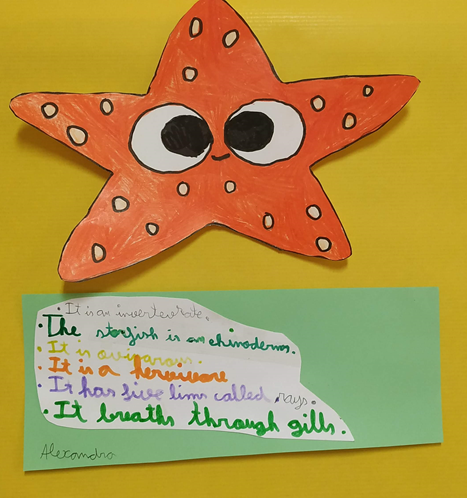 · It is an invertevrate.
· The starfish is an echinoderms.
· It is oviparous.
· It is a hervivore
· It has five lims called rays.
· It breaths through gills.
Alexandra